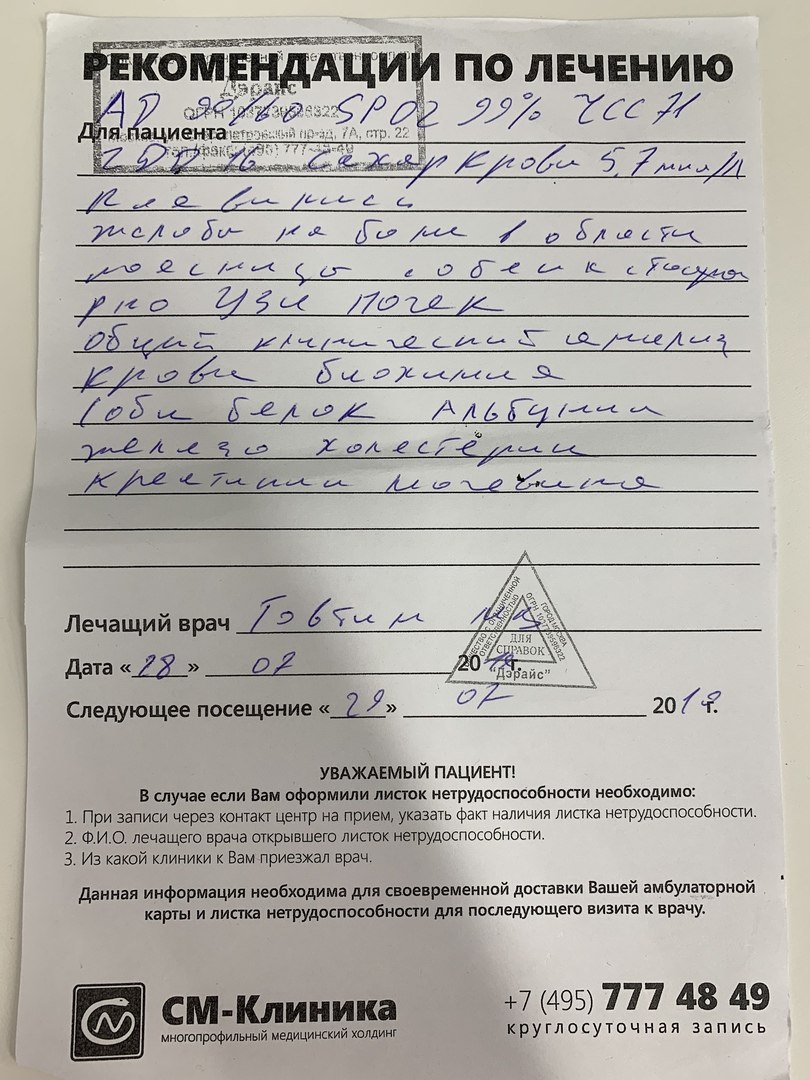 РЕКОМЕНДАЦИИ ПО ЛЕЧЕНИЮ
Дэрайс
ОГРН 1027739596322
7А, стр. 22
АД 90/60 SPO2 99% ЧСС 71
Для пациента
сахар крови 5,7
жалобы на боли в области
поясницы с обеих
УЗИ почек
общий клинический анализ
крови биохимия
(общ белок Альбумин
железо холестерин
креатинин мочевина
Лечащий врач
Дата «28» 07 20 г.
Следующее посещение «29» 07 20 г.
ГОРОД МОСКВА
ОГРН 1027739596322
ДЛЯ СПРАВОК
"Дэрайс"
УВАЖАЕМЫЙ ПАЦИЕНТ!
В случае если Вам оформили листок нетрудоспособности необходимо:
1. При записи через контакт центр на прием, указать факт наличия листка нетрудоспособности.
2. Ф.И.О. лечащего врача открывшего листок нетрудоспособности.
3. Из какой клиники к Вам приезжал врач.
Данная информация необходима для своевременной доставки Вашей амбулаторной
карты и листка нетрудоспособности для последующего визита к врачу.
СМ-Клиника
многопрофильный медицинский холдинг
+7 (495) 777 48 49
круглосуточная запись